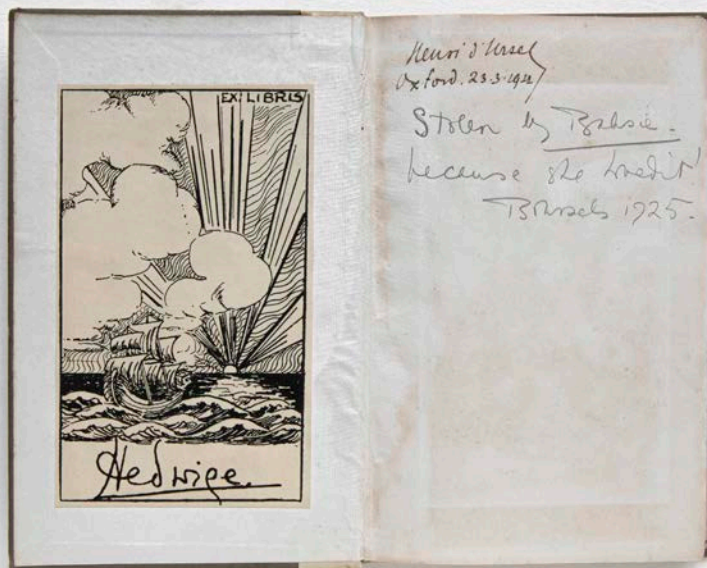 EX LIBRIS
Hedwige.
Henri d'Ursel
Oxford. 23.3.
Stolen by
because she loved it!
Brussels 1925.